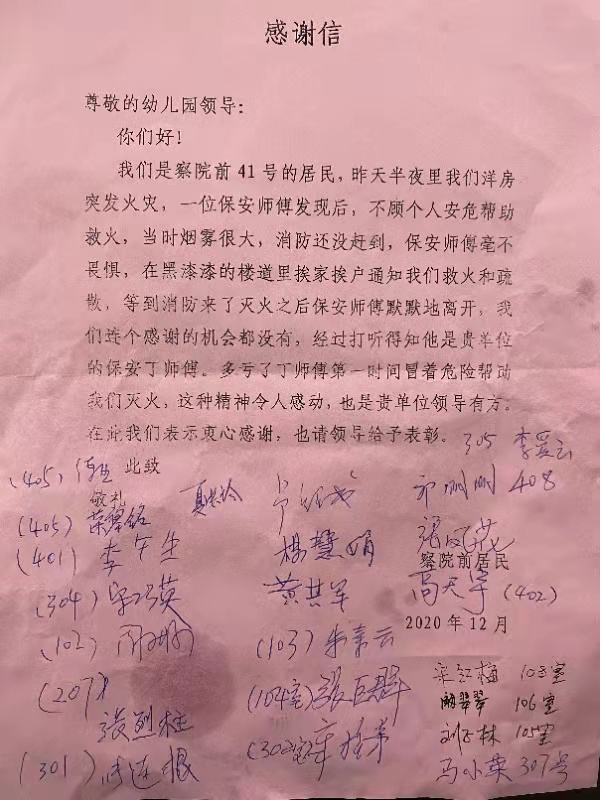 感谢信
尊敬的幼儿园领导：
你们好！
我们是察院前41号的居民，昨天半夜里我们洋房
突发火灾，一位保安师傅发现后，不顾个人安危帮助
救火，当时烟雾很大，消防还没赶到，保安师傅毫不
畏惧，在黑漆漆的楼道里挨家挨户通知我们救火和疏
散，等到消防来了灭火之后保安师傅默默地离开，我
们连个感谢的机会都没有，经过打听得知他是贵单位
的保安丁师傅。多亏了丁师傅第一时间冒着危险帮助
我们灭火，这种精神令人感动，也是贵单位领导有方。
在此我们表示衷心感谢，也请领导给予表彰。
305 李爱云
(405)
此致
敬礼
408
(405)
(401) 李午生 杨慧娟
察院前居民
(304) 黄其军 高天宇 (402)
2020年12月
(102) (103) 朱素云
宋红梅 108室
(207) (104室) 张巨群
翠翠 106室
张烈柱 (302室)
刘正林 105室
(301) 周连根 马小荣 307号